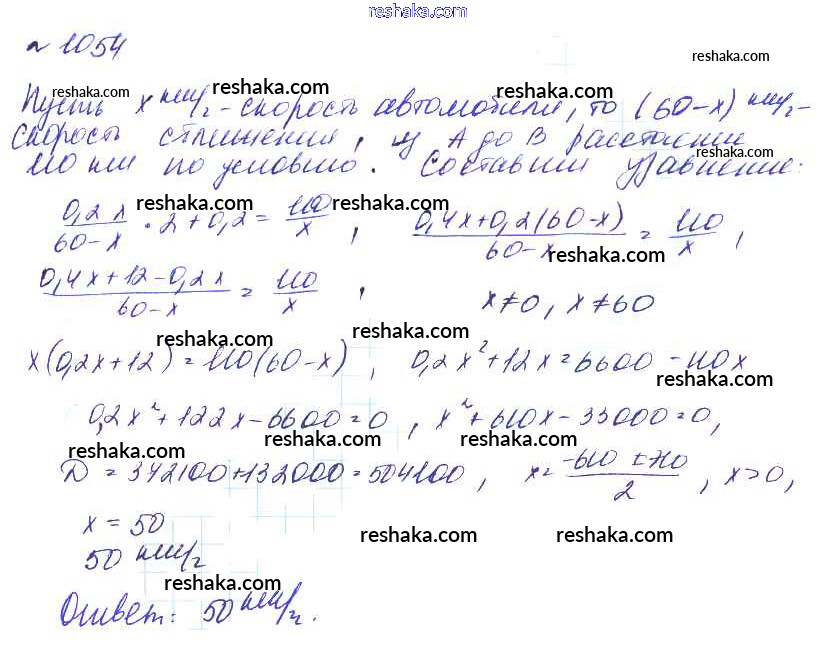 reshaka.com
№ 1054
reshaka.com
reshaka.com reshaka.com reshaka.com
Пусть x км/ч - скорость автомобиля, то (60-x) км/ч -
скорость сближения, из A до B расстояние
reshaka.com
110 км по условию. Составим уравнение:
reshaka.com reshaka.com reshaka.com
0,2x/60-x · 2 + 0,2 = 110/x , 0,4x+0,2(60-x)/60-x = 110/x ,
reshaka.com
0,4x+12-0,2x/60-x = 110/x , x≠0, x≠60
reshaka.com reshaka.com
x(0,2x+12) = 110(60-x) , 0,2x²+12x=6600-110x
reshaka.com
0,2x²+122x-6600=0 , x²+610x-33000=0,
reshaka.com reshaka.com
D = 372100+132000=504100 , x= -610±710/2 , x>0,
x = 50
reshaka.com reshaka.com
50 км/ч
reshaka.com
Ответ: 50 км/ч.